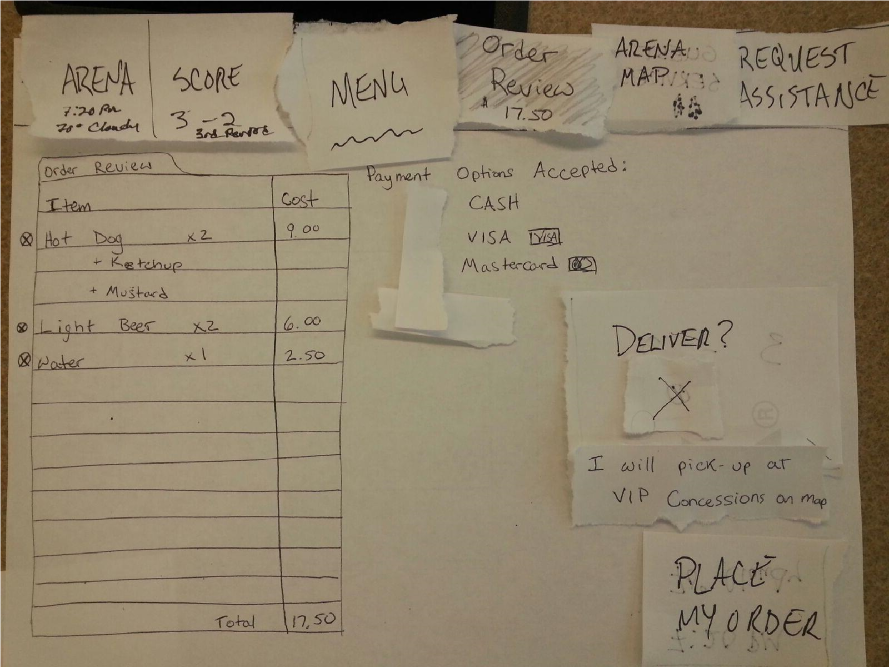 ARENA
7:20 PM
70° Cloudy
SCORE
3 - 2
3rd Period
MENU
Order
Review
$ 17.50
ARENA
MAP
REQUEST
ASSISTANCE
Order Review
Item Cost
Hot Dog x2 9.00
+ Ketchup
+ Mustard
Light Beer x2 6.00
Water x1 2.50
Total 17.50
Payment Options Accepted:
CASH
VISA VISA
Mastercard
DELIVER?
I will pick-up at
VIP Concessions on map
PLACE
MY ORDER